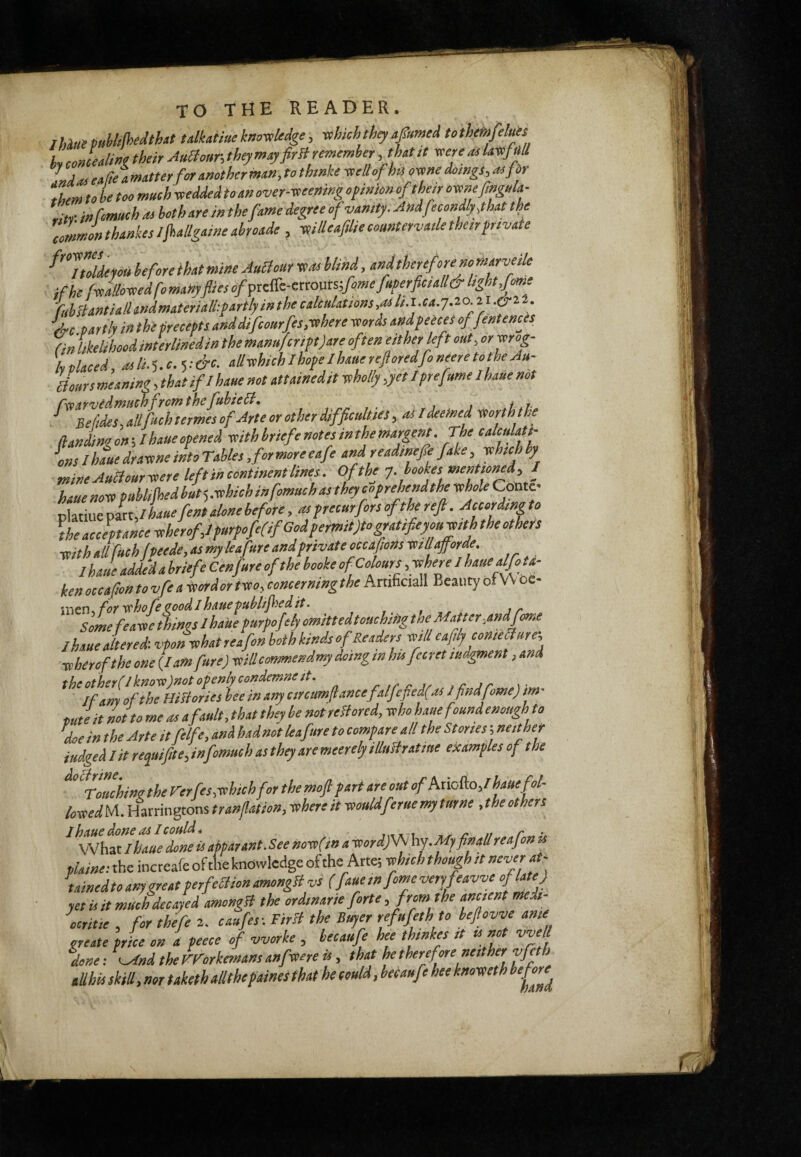 TO THE READER.
I haue publiſhed that talkatiue knowledge, which they aſſumed to themſelues
by concealing their Auctour; they may firſt remember, that it were as lawfull
and as eaſie a matter for another man, to thinke well of his owne doings, as for
them to be too much wedded to an over-weening opinion of their owne ſingula-
rity: inſomuch as both are in the ſame degree of vanity. And ſecondly, that the
common thankes I ſhall gaine abroade, will eaſilie countervaile their private
frownes.
I tolde you before that mine Auctour was blind, and therefore no marveile
if he ſwallowed ſo many flies of preſſe-errours; ſome ſuperficiall & light, ſome
ſubſtantiall and materiall: partly in the calculations, as li.1.ca.7.20.21.&22.
&c. partly in the precepts and diſcourſes, where words and peeces of ſentences
(in likelihood interlined in the manuſcript) are often either left out, or wrõg-
ly placed, as li.5.c.5: &c. all which I hope I haue reſtored ſo neere to the Au-
ctours meaning, that if I haue not attained it wholly, yet I preſume I haue not
ſwarved much from the ſubiect.
Beſides, all ſuch termes of Arte or other difficulties, as I deemed worth the
ſtanding on; I haue opened with briefe notes in the margent. The calculati-
ons I haue drawne into Tables, for more eaſe and readineſſe ſake, which by
mine Auctour were left in continent lines. Of the 7. bookes mentioned, I
haue now publiſhed but 5. which inſomuch as they cõprehend the whole Contẽ-
platiue part, I haue ſent alone before, as precurſors of the reſt. According to
the acceptance wherof, I purpoſe (if God permit) to gratifie you with the others
with all ſuch ſpeede, as my leaſure and private occaſions will afforde.
I haue added a briefe Cenſure of the booke of Colours, where I haue alſo ta-
ken occaſion to vſe a word or two, concerning the Artificiall Beauty of VVoe-
men, for whoſe good I haue publiſhed it.
Some feawe things I haue purpoſely omitted touching the Matter, and ſome
I haue altered: vpon what reaſon both kinds of Readers will eaſily coniecture;
wherof the one (I am ſure) will commend my doing in his ſecret iudgment, and
the other (I know) not openly condemne it.
If any of the Hiſtories bee in any circumſtance falſefied (as I find ſome) im-
pute it not to me as a fault, that they be not reſtored, who haue found enough to
doe in the Arte it ſelfe, and had not leaſure to compare all the Stories; neither
iudged I it requiſite, inſomuch as they are meerely illuſtratiue examples of the
doctrine.
Touching the Verſes, which for the moſt part are out of Arioſto, I haue fol-
lowed M. Harringtons tranſlation, where it would ſerue my turne, the others
I haue done as I could.
What I haue done is apparant. See now (in a word) Why. My finall reaſon is
plaine: the increaſe of the knowledge of the Arte; which though it never at-
tained to any great perfection amongſt vs (ſaue in ſome very feavve of late)
yet is it much decayed amongſt the ordinarie ſorte, from the ancient medi-
ocritie, for theſe 2. cauſes: Firſt the Buyer refuſeth to beſtovve anie
greate price on a peece of vvorke, becauſe hee thinkes it is not vvell
done: And the VVorkemans anſwere is, that he therefore neither vſeth
all his skill, nor taketh all the paines that he could, becauſe hee knoweth before
hand